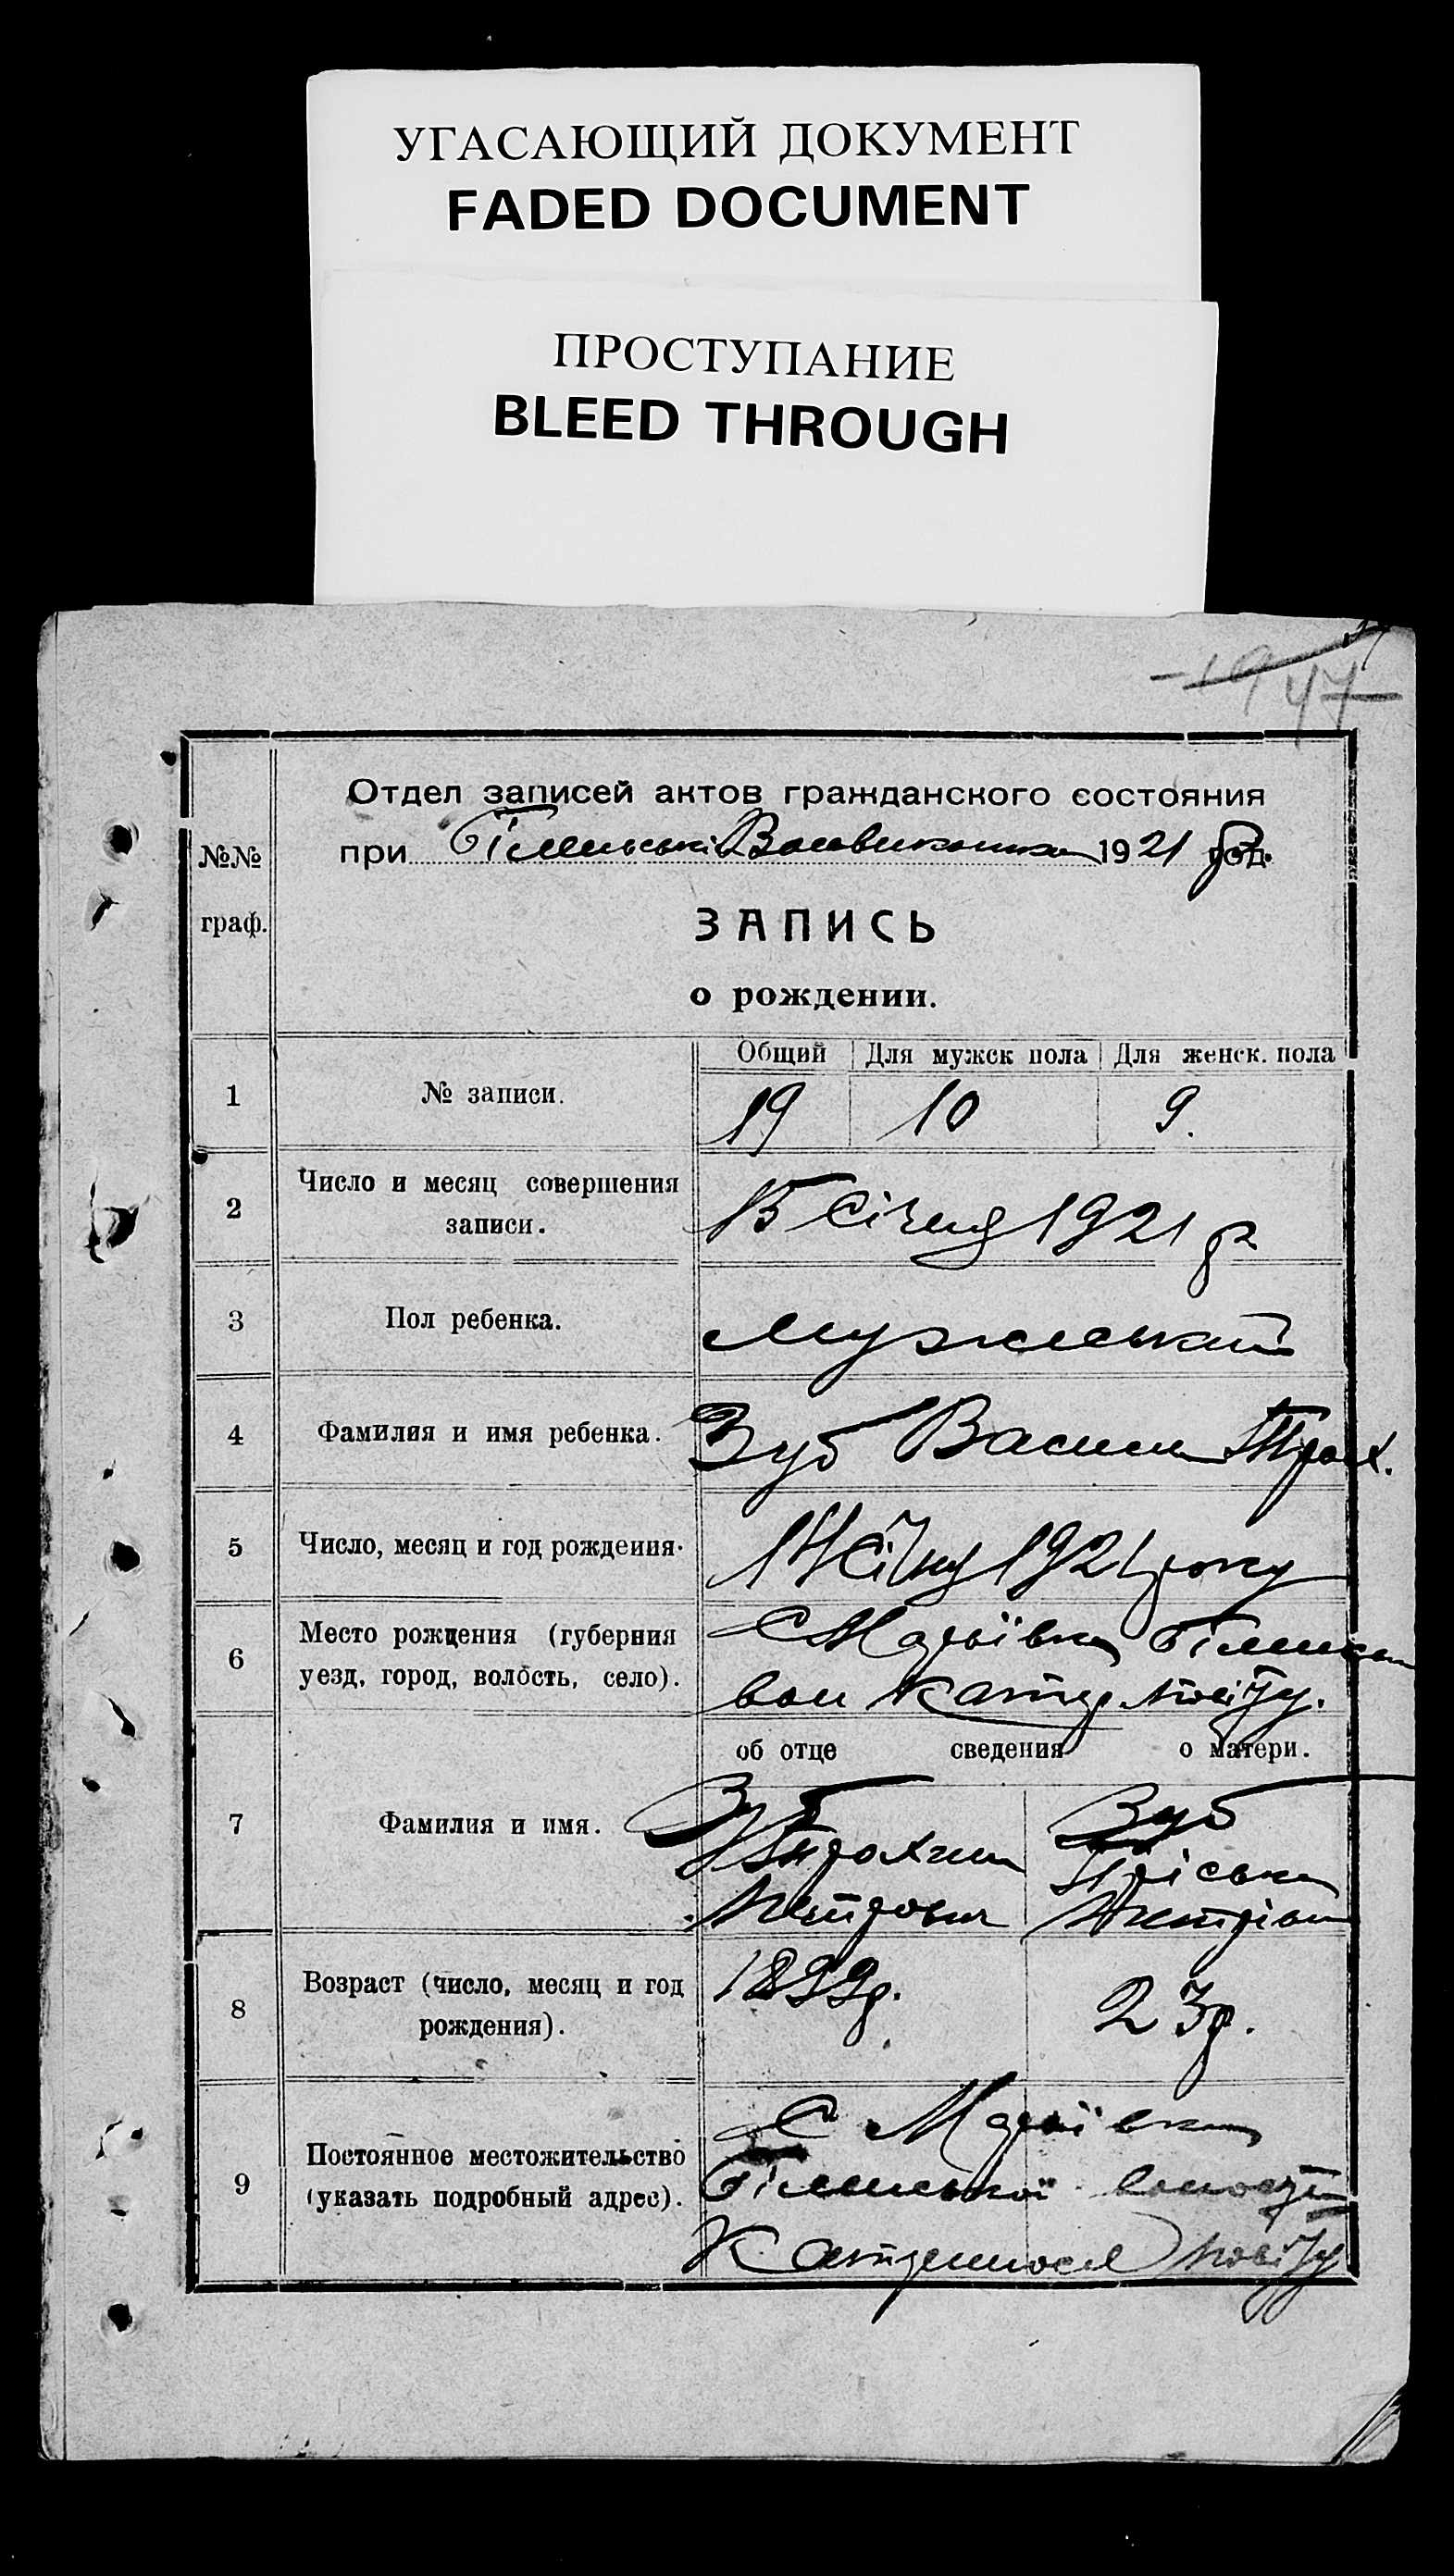 УГАСАЮЩИЙ ДОКУМЕНТ
FADED DOCUMENT
ПРОСТУПАНИЕ
BLEED THROUGH
19 47
Отдел записей актов гражданского состояния
№№
граф.
при 1921 год.
ЗАПИСЬ
о рождении.
Общий Для мужск пола Для женск. пола
1 № записи. 19 10 9.
2 Число и месяц совершения
записи. 15 Січня 1921 р
3 Пол ребенка. Мужеський
4 Фамилия и имя ребенка. Зуб Василь Трох.
5 Число, месяц и год рождения. 14 Січня 1921 року
6 Место рождения (губерния
уезд, город, волость, село).
С Маріївка
вол Катер. повіту.
об отце сведения о матери.
7 Фамилия и имя. Зуб Зуб
Трохим
Петрович Петрівна
8 Возраст (число, месяц и год
рождения). 1899р. 23р.
9 Постоянное местожительство
(указать подробный адрес).
С Маріївка
волости
повіту